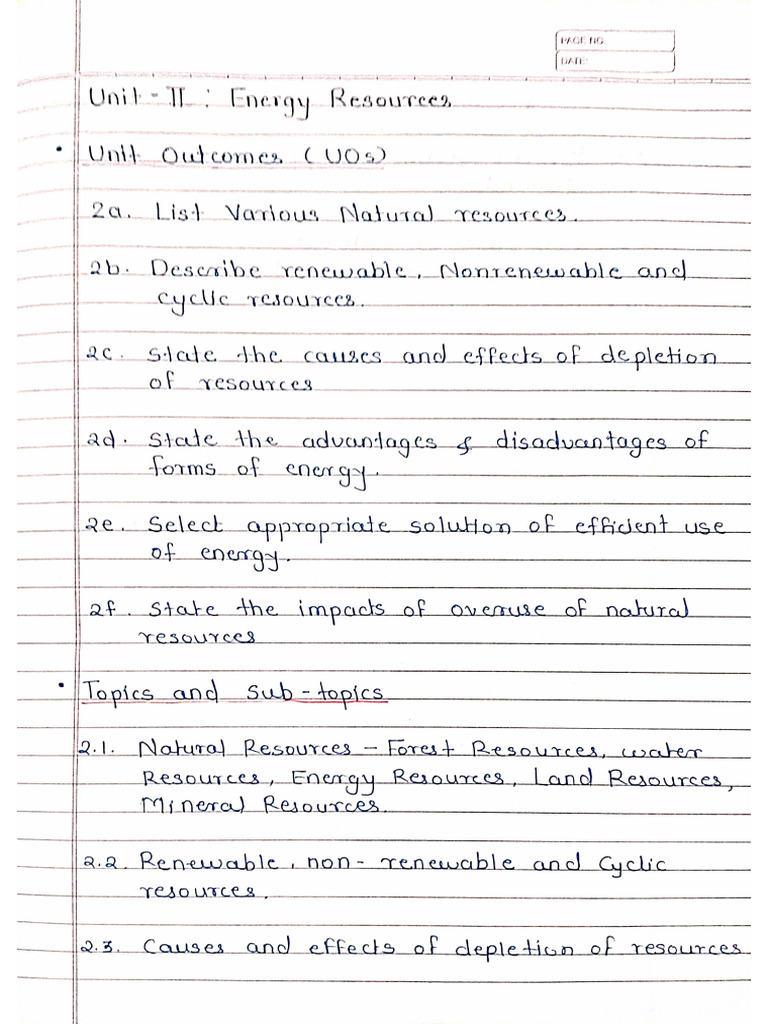 PAGE NO.
DATE:
Unit - II : Energy Resources
• Unit Outcomes (UOs)
2a. List Various Natural resources.
2b. Describe renewable, Nonrenewable and
cyclic resources.
2c. State the causes and effects of depletion
of resources
2d. State the advantages & disadvantages of
forms of energy.
2e. Select appropriate solution of efficient use
of energy.
2f. State the impacts of overuse of natural
resources
• Topics and Sub-topics
2.1. Natural Resources - Forest Resources, water
Resources, Energy Resources, Land Resources,
Mineral Resources.
2.2. Renewable, non- renewable and Cyclic
resources.
2.3. Causes and effects of depletion of resources